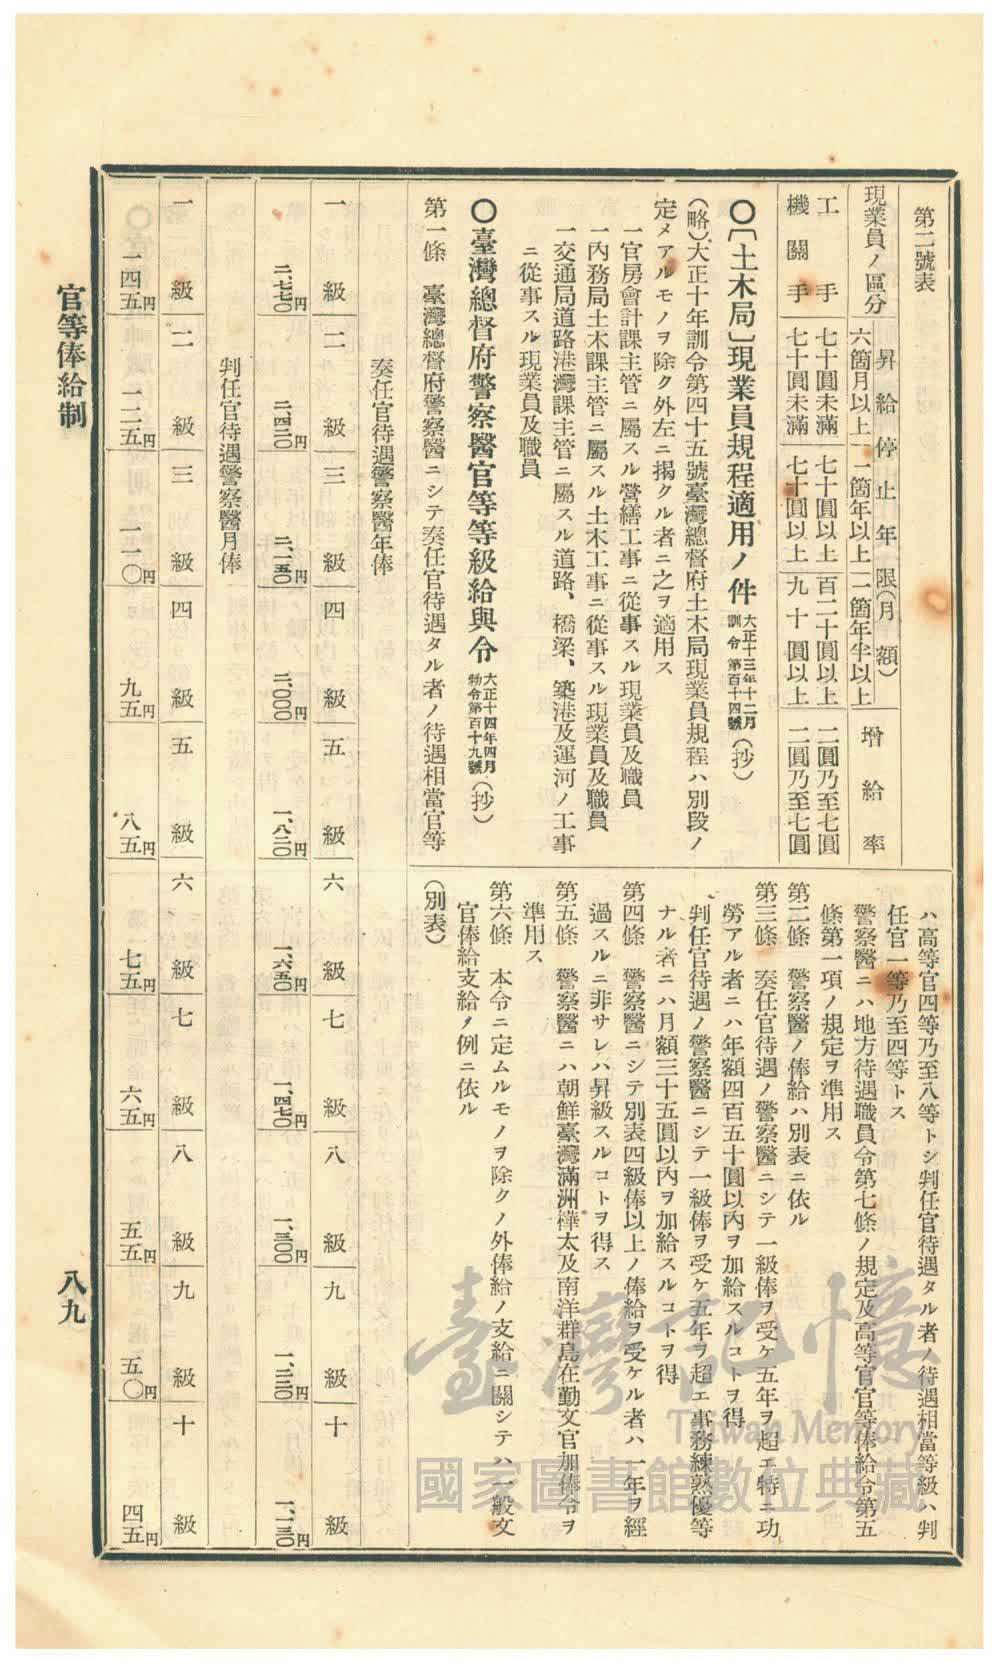 第二號表
現業員ノ區分
昇給停止年限(月額)
六箇月以上
一箇年以上
一箇年半以上
增給率
工手
七十圓未滿
七十圓以上
百二十圓以上
二圓乃至七圓
機關手
七十圓未滿
七十圓以上
九十圓以上
二圓乃至七圓
〇〔土木局〕現業員規程適用ノ件 大正十三年十二月訓令第百十四號(抄)
(略)大正十年訓令第四十五號臺灣總督府土木局現業員規程ハ別段ノ
定メアルモノヲ除ク外左ニ揭クル者ニ之ヲ適用ス
一官房會計課主管ニ屬スル營繕工事ニ從事スル現業員及職員
一內務局土木課主管ニ屬スル土木工事ニ從事スル現業員及職員
一交通局道路港灣課主管ニ屬スル道路、橋梁、築港及運河ノ工事
ニ從事スル現業員及職員
〇臺灣總督府警察醫官等等級給與令 大正十四年四月勅令第百十九號(抄)
第一條 臺灣總督府警察醫ニシテ奏任官待遇タル者ノ待遇相當官等
ハ高等官四等乃至八等トシ判任官待遇タル者ノ待遇相當等級ハ判
任官一等乃至四等トス
警察醫ニハ地方待遇職員令第七條ノ規定及高等官官等俸給令第五
條第一項ノ規定ヲ準用ス
第二條 警察醫ノ俸給ハ別表ニ依ル
第三條 奏任官待遇ノ警察醫ニシテ一級俸ヲ受ケ五年ヲ超エ特ニ功
勞アル者ニハ年額四百五十圓以內ヲ加給スルコトヲ得
判任官待遇ノ警察醫ニシテ一級俸ヲ受ケ五年ヲ超エ事務練熟優等
ナル者ニハ月額三十五圓以內ヲ加給スルコトヲ得
第四條 警察醫ニシテ別表四級俸以上ノ俸給ヲ受ケル者ハ一年ヲ經
過スルニ非サレハ昇級スルコトヲ得ス
第五條 警察醫ニハ朝鮮臺灣滿洲樺太及南洋群島在勤文官加俸令ヲ
準用ス
第六條 本令ニ定ムルモノヲ除クノ外俸給ノ支給ニ關シテハ一般文
官俸給支給ノ例ニ依ル
(別表)
奏任官待遇警察醫年俸
一級 二級 三級 四級 五級 六級 七級 八級 九級 十級
二、七七〇円 二、四二〇円 二、一五〇円 二、〇〇〇円 一、八二〇円 一、六五〇円 一、四七〇円 一、三〇〇円 一、二二〇円 一、一三〇円
判任官待遇警察醫月俸
一級 二級 三級 四級 五級 六級 七級 八級 九級 十級
一四五円 一二五円 一一〇円 九五円 八五円 七五円 六五円 五五円 五〇円 四五円
官等俸給制
八九
臺灣記憶
Taiwan Memory
國家圖書館數位典藏